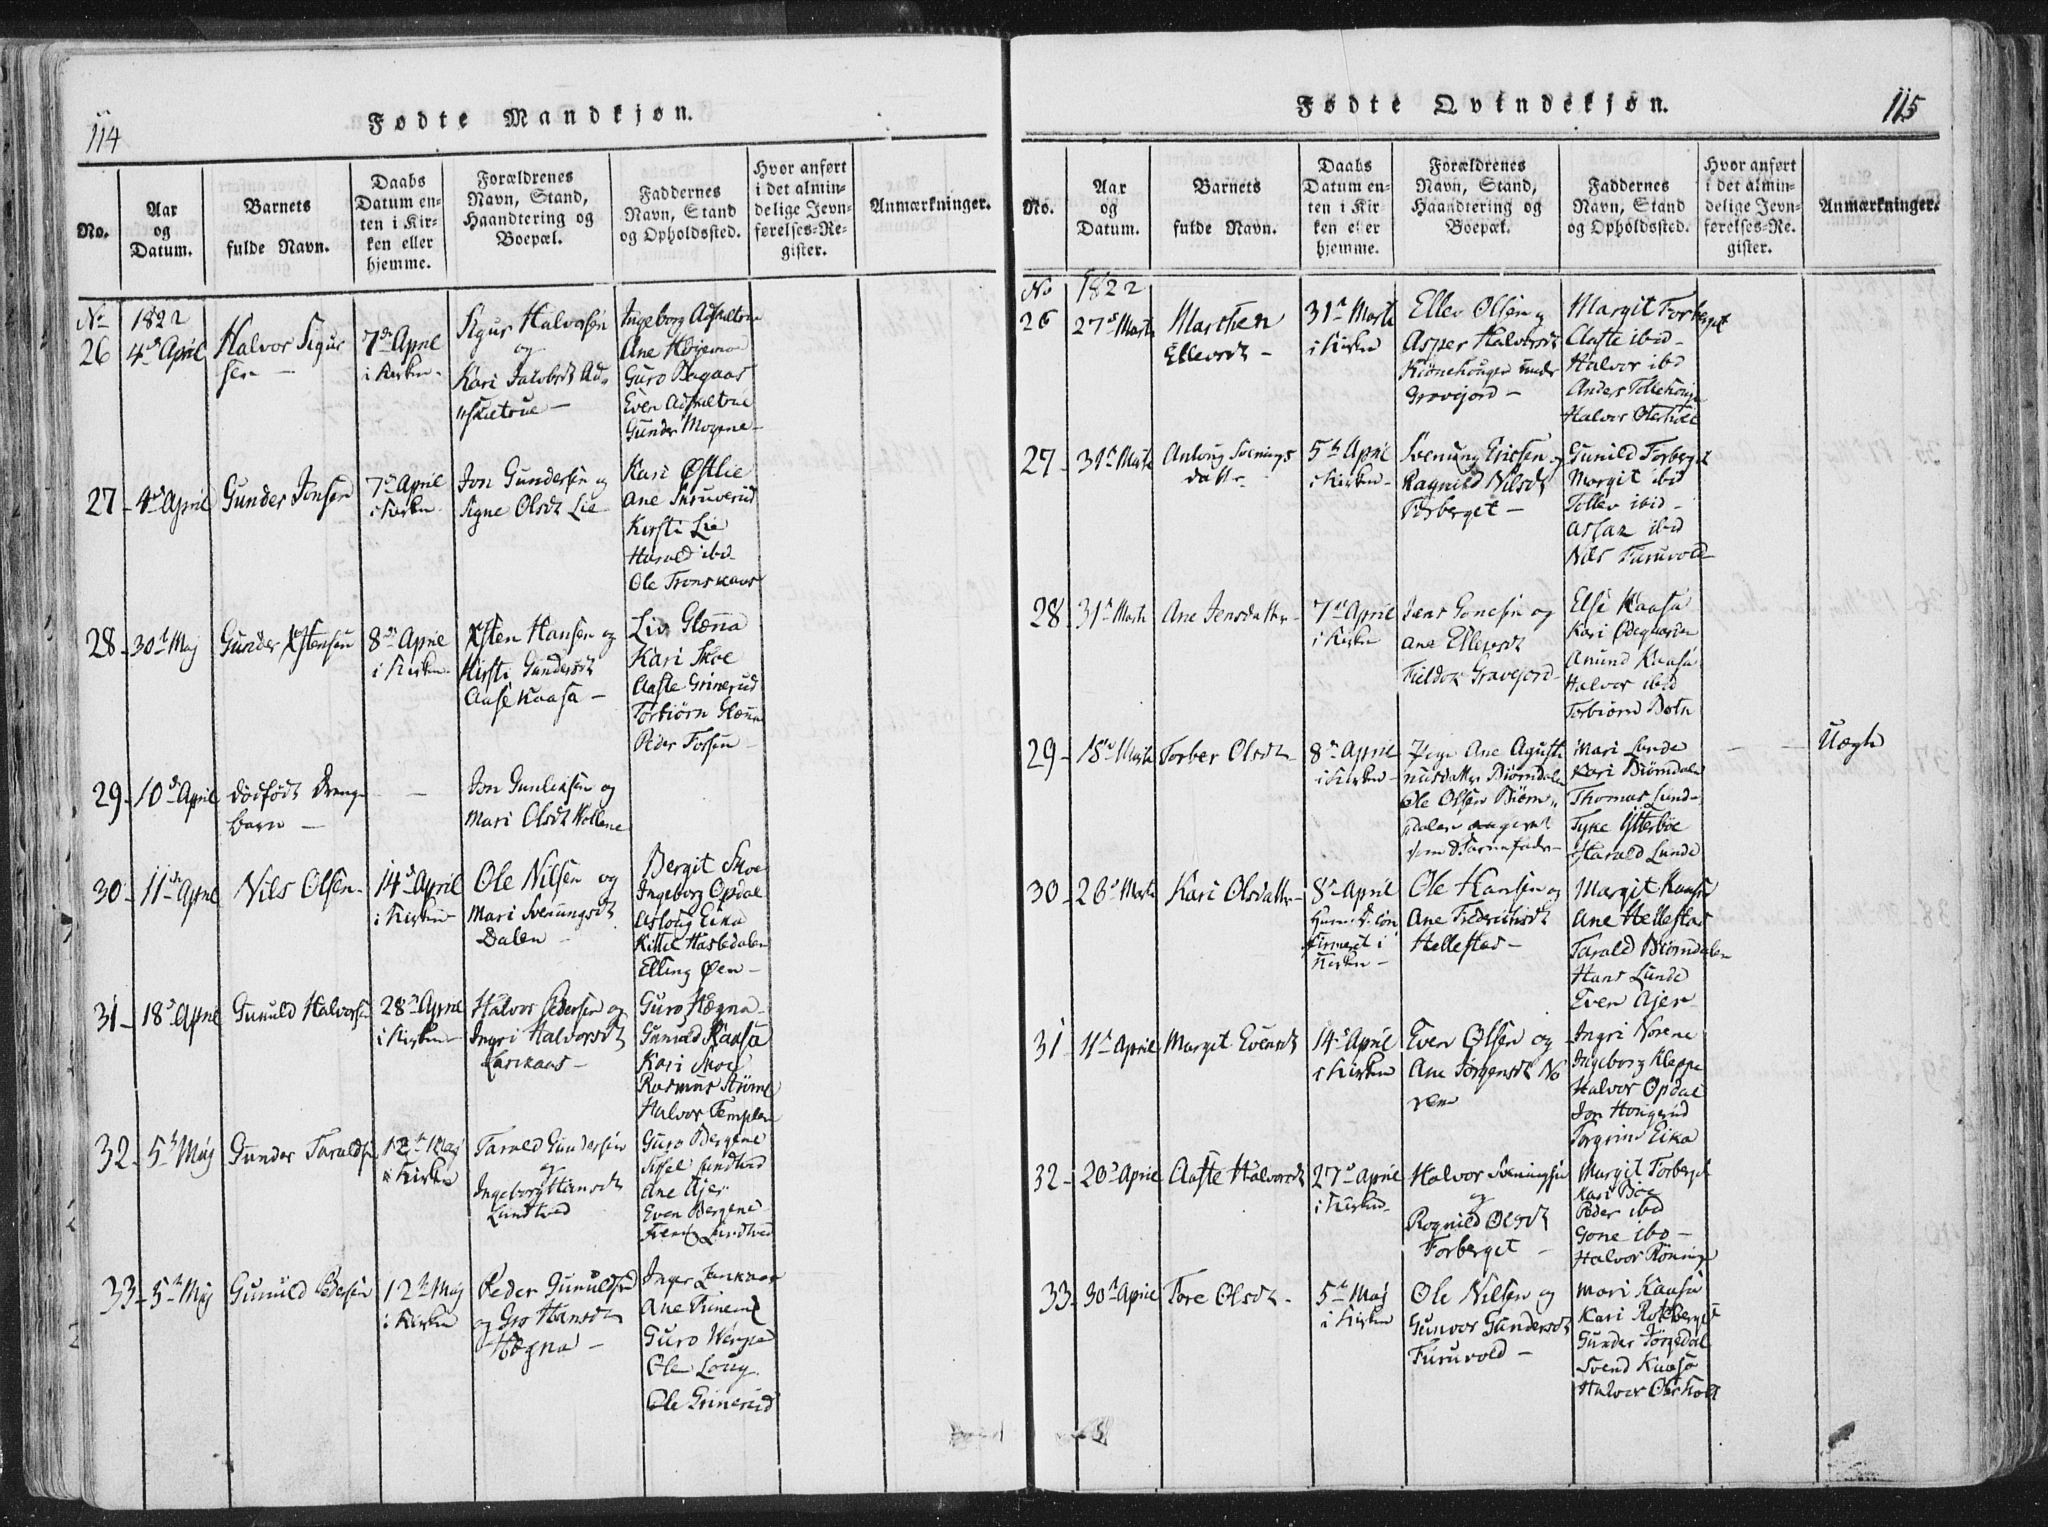 114
Fødte Mandkjøn.
No.
Aar
og
Datum.
Barnets
fulde Navn.
Daabs
Datum en-
ten i Kir-
ken eller
hjemme.
Forældrenes
Navn, Stand,
Haandtering og
Boepæl.
Faddernes
Navn, Stand
og Opholdssted.
Hvor anført
i det almin-
delige Jevn-
førelses-Re-
gister.
Anmærkninger.
No 1822
26 4de April
Halvor Sigur
sen
7de April
i Kirken
Sigur Halvorsen
og
Kari Jacobsdt
Ane
Guro
Even
Gunder Mogene
27 4de April
Gunder Jonsen
7de April
i Kirken
Jon Gundersen og
Signe Olsdt Lie
Kari Østlie
Ane Skruverud
Kirsti Lie
Harald ibd
Ole
28 30te Maj
Gunder Østensen
8de April
i Kirken
Østen Hansen og
Kirsti Gundersdt
Aase Kaasa
Liv Glænna
Kari Skoe
Aaste Grinerud
Torbiørn Glænna
Peder Forsen
29 10de April
dødfødt Drenge
barn
Jon Gunleksen og
Mari Olsdt
30 11de April
Nils Olsen
14de April
i Kirken
Ole Nilsen og
Mari Svenungsdt
Dalen
Bergit Skoe
Ingeborg Opdal
Asloug Eika
Kittil Hasledalen
Elling Øen
31 18de April
Gunuld Halvorsen
28de April
i Kirken
Halvor Pedersen og
Ingri Halvorsdt
Guro Hægna
Gunuld Kaasa
Kari Skoe
Rasmus
Halvor Templen
32 5te Maj
Gunder Taraldsen
12te Maj
i Kirken
Tarald Gundersen
og
Ingeborg Hansdt
Lundtved
Guro Bergene
Sissel Lundtved
Ane Ajer
Even Bergene
Lundtved
33 5te Maj
Gunuld Pedersen
12te Maj
i Kirken
Peder Gunuldsen
og Gro Hansdt
Hægna
Inger
Ane
Guro Werpe
Ole Loug
Ole Grinerud
115
Fødte Qvindekjøn.
No.
Aar
og
Datum.
Barnets
fulde Navn.
Daabs
Datum en-
ten i Kir-
ken eller
hjemme.
Forældrenes
Navn, Stand,
Haandtering og
Boepæl.
Faddernes
Navn, Stand
og Opholdssted.
Hvor anført
i det almin-
delige Jevn-
førelses-Re-
gister.
Anmærkninger.
No 1822
26 27de Marts
Marthen
Ellevsdt
31te Marts
i Kirken
Ellev Olsen og
Halvorsdt
under
Gravejord
Margit Forberget
Aaste ibid
Halvor ibd
Anders
Halvor Oterholt
27 31te Marts
Anloug Svenings
datter
5te April
i Kirken
Svenung Ericsen og
Ragnild Nilsdt
Forberget
Gunild Forberget
Margit ibid
Tollev ibid
ibid
Nils Furuvold
28 31te Marts
Ane Jensdatter
7de April
i Kirken
Jens Gonesen og
Ane Ellevsdt
Gravejord
Else Kaasa
Kari Ødegaarden
Amund Kaasa
Halvor ibid
Torbiørn Botn
29 18de Marts
Torber Olsdt
8de April
i Kirken
Pige Ane Agusti
nusdatter Biørndalen
Ole Olsen Biørn
dalen angivet
som Barnefader
Mari Lunde
Kari Biørndalen
Thomas Lunde
Tyke Ytterbøe
Harald Lunde
Uægte
30 26de Marts
Kari Olsdatter
8de April
i
Kirken
Ole Hansen og
Ane Fiderichsdt
Hellestad
Margit Kaasa
Ane Hellestad
Tarald Biørndalen
Hans Lunde
Even Ajer
31 11te April
Margit Evensdt
14de April
i Kirken
Even Olsen og
Ane Jørgensdt No
rene
Ingri Norene
Ingeborg Kleppe
Halvor Opdal
Jon Hougerud
Torgrim Eika
32 20de April
Aaste Halvorsdt
27de April
i Kirken
Halvor Sveningsen
og
Rognild Olsdt
Forberget
Margit Forberget
Kari Bøe
Peder ibid
Gone ibd
Halvor Rønninge
33 30te April
Tore Olsdt
5te Maj
i Kirken
Ole Nilsen og
Gunvor Gundersdt
Furuvold
Mari Kaasa
Kari Rokberget
Gunder Jørgedal
Svend Kaasa
Halvor Oterholt